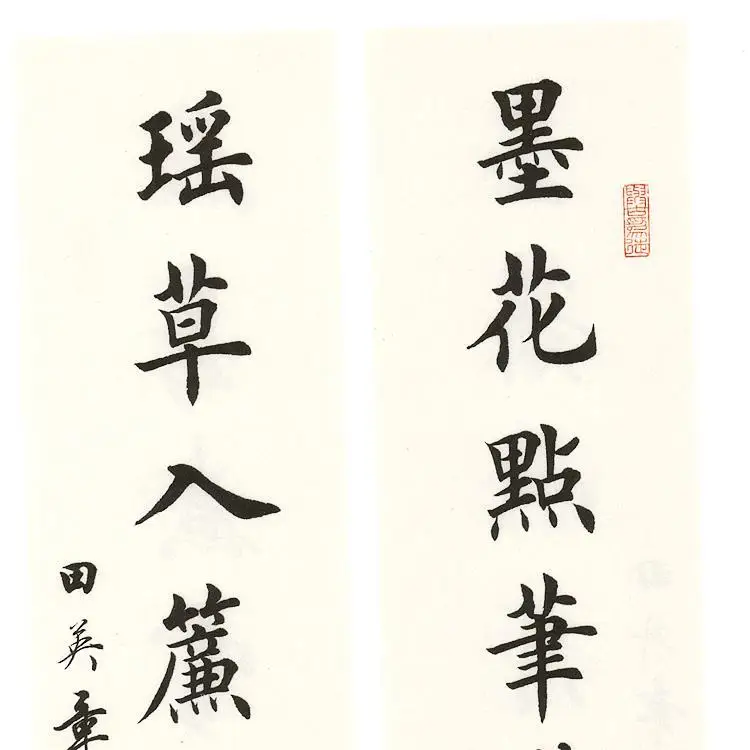 墨花點筆
瑶草入簾
田英章